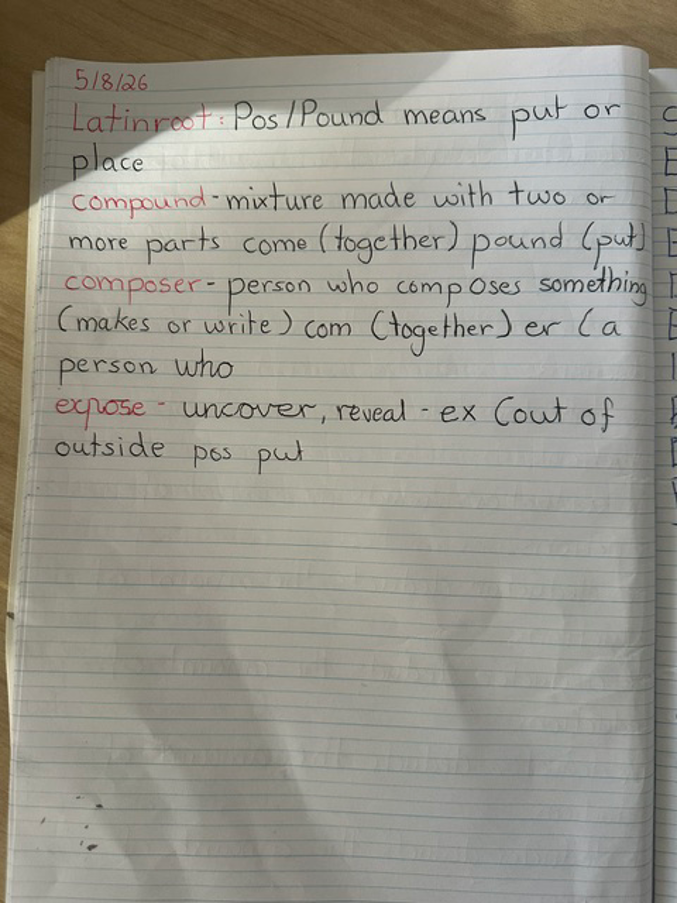 5/8/26
Latin root: Pos/Pound means put or
place
compound - mixture made with two or
more parts come (together) pound (put)
composer - person who composes something
(makes or write) com (together) er (a
person who
expose - uncover, reveal - ex (out of
outside pos put